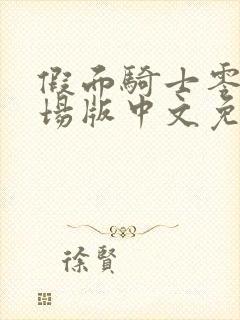 假面騎士零
場版中文免
徐賢